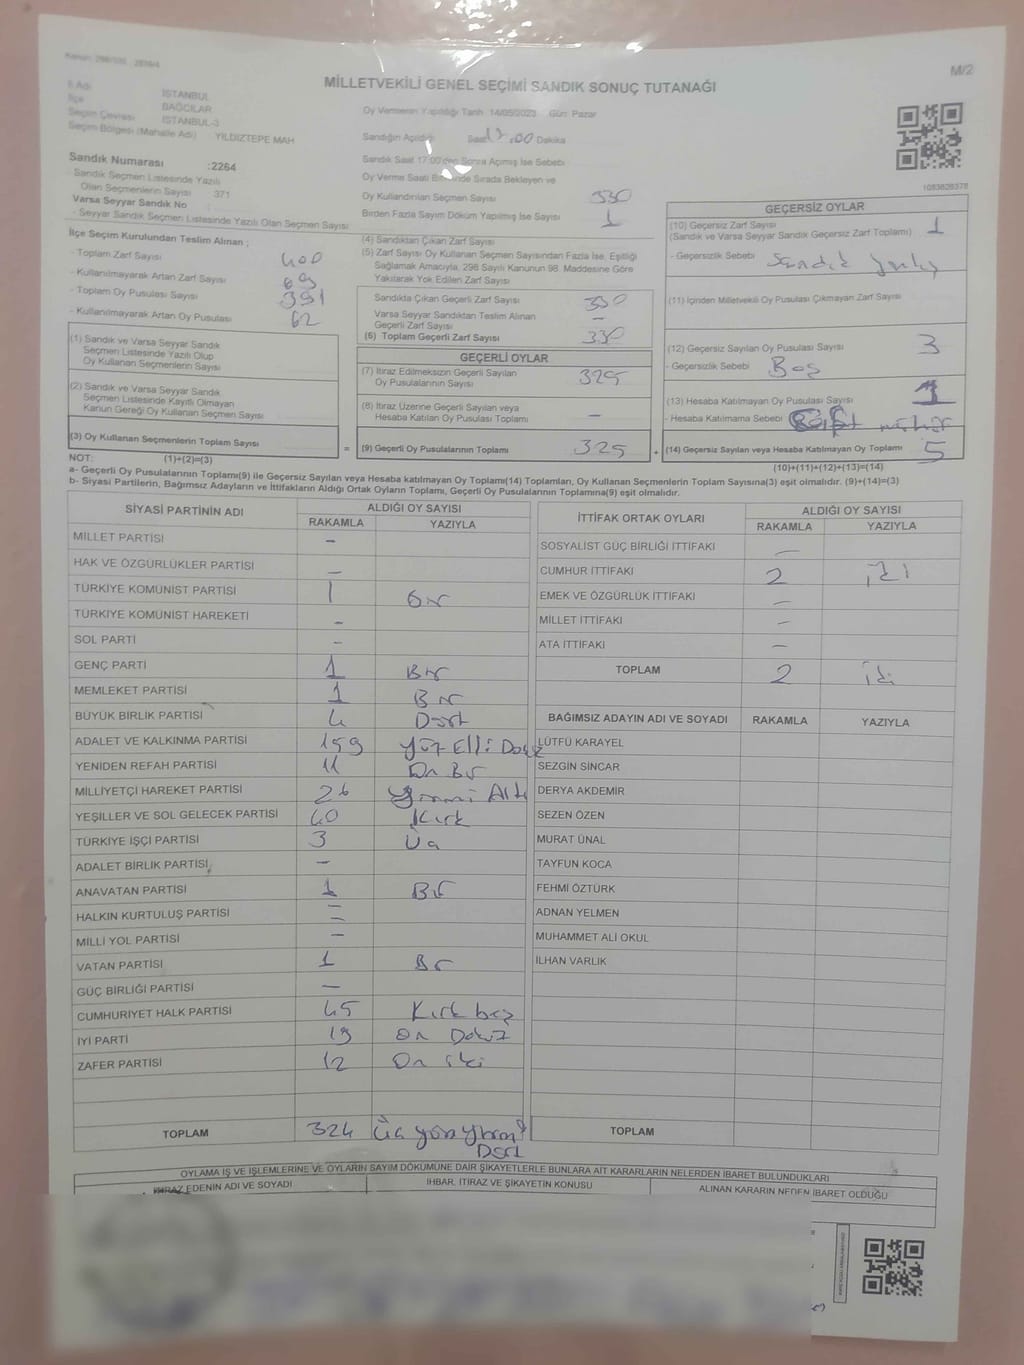 M/2
MİLLETVEKİLİ GENEL SEÇİMİ SANDIK SONUÇ TUTANAĞI
İl Adı İSTANBUL
İlçe BAĞCILAR
Seçim Çevresi İSTANBUL-3
Seçim Bölgesi (Mahalle Adı) YILDIZTEPE MAH
Sandık Numarası :2264
- Sandık Seçmen Listesinde Yazılı
Olan Seçmenlerin Sayısı 371
Varsa Seyyar Sandık No
- Seyyar Sandık Seçmen Listesinde Yazılı Olan Seçmen Sayısı
İlçe Seçim Kurulundan Teslim Alınan ;
- Toplam Zarf Sayısı 400
- Kullanılmayarak Artan Zarf Sayısı 69
- Toplam Oy Pusulası Sayısı 391
- Kullanılmayarak Artan Oy Pusulası 62
(1) Sandık ve Varsa Seyyar Sandık
Seçmen Listesinde Yazılı Olup
Oy Kullanan Seçmenlerin Sayısı
(2) Sandık ve Varsa Seyyar Sandık
Seçmen Listesinde Kayıtlı Olmayan
Kanun Gereği Oy Kullanan Seçmen Sayısı
(3) Oy Kullanan Seçmenlerin Toplam Sayısı =
(1)+(2)=(3)
Oy Vermenin Yapıldığı Tarih 14/05/2023 Gün: Pazar
Sandığın Açıldığı Saat 17.00 Dakika
Sandık Saat 17:00'den Sonra Açılmış İse Sebebi
Oy Verme Saati Sırada Bekleyen ve
Oy Kullandırılan Seçmen Sayısı 330
Birden Fazla Sayım Döküm Yapılmış İse Sayısı 1
(4) Sandıktan Çıkan Zarf Sayısı
(5) Zarf Sayısı Oy Kullanan Seçmen Sayısından Fazla İse, Eşitliği
Sağlamak Amacıyla, 298 Sayılı Kanunun 98. Maddesine Göre
Yakılarak Yok Edilen Zarf Sayısı
Sandıkta Çıkan Geçerli Zarf Sayısı 330
Varsa Seyyar Sandıktan Teslim Alınan
Geçerli Zarf Sayısı –
(6) Toplam Geçerli Zarf Sayısı 330
GEÇERLİ OYLAR
(7) İtiraz Edilmeksizin Geçerli Sayılan
Oy Pusulalarının Sayısı 325
(8) İtiraz Üzerine Geçerli Sayılan veya
Hesaba Katılan Oy Pusulası Toplamı –
(9) Geçerli Oy Pusulalarının Toplamı 325 +
1083828378
GEÇERSİZ OYLAR
(10) Geçersiz Zarf Sayısı 1
(Sandık ve Varsa Seyyar Sandık Geçersiz Zarf Toplamı)
- Geçersizlik Sebebi Sandık
(11) İçinden Milletvekili Oy Pusulası Çıkmayan Zarf Sayısı
(12) Geçersiz Sayılan Oy Pusulası Sayısı 3
- Geçersizlik Sebebi Boş
(13) Hesaba Katılmayan Oy Pusulası Sayısı 1
- Hesaba Katılmama Sebebi
(14) Geçersiz Sayılan veya Hesaba Katılmayan Oy Toplamı 5
(10)+(11)+(12)+(13)=(14)
NOT:
a- Geçerli Oy Pusulalarının Toplamı(9) ile Geçersiz Sayılan veya Hesaba katılmayan Oy Toplamı(14) Toplamları, Oy Kullanan Seçmenlerin Toplam Sayısına(3) eşit olmalıdır. (9)+(14)=(3)
b- Siyasi Partilerin, Bağımsız Adayların ve İttifakların Aldığı Ortak Oyların Toplamı, Geçerli Oy Pusulalarının Toplamına(9) eşit olmalıdır.
SİYASİ PARTİNİN ADI ALDIĞI OY SAYISI
RAKAMLA YAZIYLA
MİLLET PARTİSİ –
HAK VE ÖZGÜRLÜKLER PARTİSİ –
TÜRKİYE KOMÜNİST PARTİSİ 1 Bir
TÜRKİYE KOMÜNİST HAREKETİ –
SOL PARTİ –
GENÇ PARTİ 1 Bir
MEMLEKET PARTİSİ 1 Bir
BÜYÜK BİRLİK PARTİSİ 4 Dört
ADALET VE KALKINMA PARTİSİ 159 Yüz Elli Dokuz
YENİDEN REFAH PARTİSİ 11 On Bir
MİLLİYETÇİ HAREKET PARTİSİ 26 Yirmi Altı
YEŞİLLER VE SOL GELECEK PARTİSİ 40 Kırk
TÜRKİYE İŞÇİ PARTİSİ 3 Üç
ADALET BİRLİK PARTİSİ –
ANAVATAN PARTİSİ 1 Bir
HALKIN KURTULUŞ PARTİSİ –
MİLLİ YOL PARTİSİ –
VATAN PARTİSİ 1 Bir
GÜÇ BİRLİĞİ PARTİSİ –
CUMHURİYET HALK PARTİSİ 45 Kırk beş
İYİ PARTİ 19 On Dokuz
ZAFER PARTİSİ 12 On iki
TOPLAM 324 Üç yüz yirmi
Dört
İTTİFAK ORTAK OYLARI ALDIĞI OY SAYISI
RAKAMLA YAZIYLA
SOSYALİST GÜÇ BİRLİĞİ İTTİFAKI –
CUMHUR İTTİFAKI 2 İki
EMEK VE ÖZGÜRLÜK İTTİFAKI –
MİLLET İTTİFAKI –
ATA İTTİFAKI –
TOPLAM 2 İki
BAĞIMSIZ ADAYIN ADI VE SOYADI RAKAMLA YAZIYLA
LÜTFÜ KARAYEL
SEZGİN SİNCAR
DERYA AKDEMİR
SEZEN ÖZEN
MURAT ÜNAL
TAYFUN KOCA
FEHMİ ÖZTÜRK
ADNAN YELMEN
MUHAMMET ALİ OKUL
İLHAN VARLIK
TOPLAM
OYLAMA İŞ VE İŞLEMLERİNE VE OYLARIN SAYIM DÖKÜMÜNE DAİR ŞİKAYETLERLE BUNLARA AİT KARARLARIN NELERDEN İBARET BULUNDUKLARI
İTİRAZ EDENİN ADI VE SOYADI İHBAR, İTİRAZ VE ŞİKAYETİN KONUSU ALINAN KARARIN NEDEN İBARET OLDUĞU